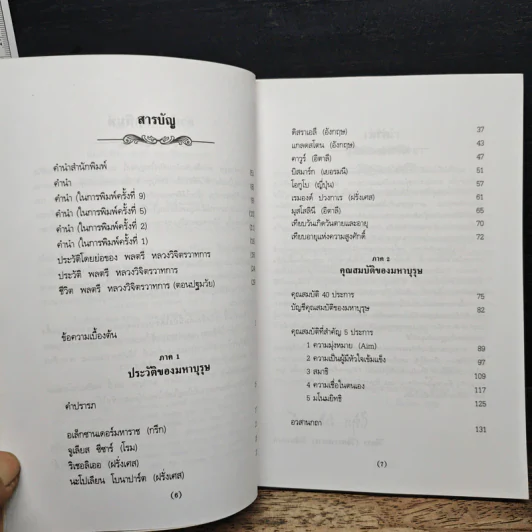 สารบัญ
คำนำสำนักพิมพ์
คำนำ
คำนำ (ในการพิมพ์ครั้งที่ 9)
คำนำ (ในการพิมพ์ครั้งที่ 5)
คำนำ (ในการพิมพ์ครั้งที่ 2)
คำนำ (ในการพิมพ์ครั้งที่ 1)
ประวัติโดยย่อของ พลตรี หลวงวิจิตรวาทการ
ประวัติ พลตรี หลวงวิจิตรวาทการ
ชีวิต พลตรี หลวงวิจิตรวาทการ (ตอนปฐมวัย)
ข้อความเบื้องต้น
ภาค 1
ประวัติของมหาบุรุษ
คำปรารภ
อเล็กซานเดอร์มหาราช (กรีก)
จูเลียส ซีซาร์ (โรม)
ริเชอลิเออ (ฝรั่งเศส)
นะโปเลียน โบนาปาร์ต (ฝรั่งเศส)
(6)
ดิสราเอลี (อังกฤษ) 37
แกลดสโตน (อังกฤษ) 43
คาวูร์ (อิตาลี) 47
บิสมาร์ก (เยอรมนี) 51
โอกูโบ (ญี่ปุ่น) 57
เรมองด์ ปวงกาเร (ฝรั่งเศส) 61
มุสโสลินี (อิตาลี) 65
เทียบวันเกิดวันตายและอายุ 70
เทียบอายุแห่งความสูงศักดิ์ 72
ภาค 2
คุณสมบัติของมหาบุรุษ
คุณสมบัติ 40 ประการ 75
บัญชีคุณสมบัติของมหาบุรุษ 82
คุณสมบัติที่สำคัญ 5 ประการ
1 ความมุ่งหมาย (Aim) 89
2 ความเป็นผู้มีหัวใจเข้มแข็ง 97
3 สมาธิ 109
4 ความเชื่อในตนเอง 117
5 มโนมยิทธิ 125
อวสานกถา 131
(7)